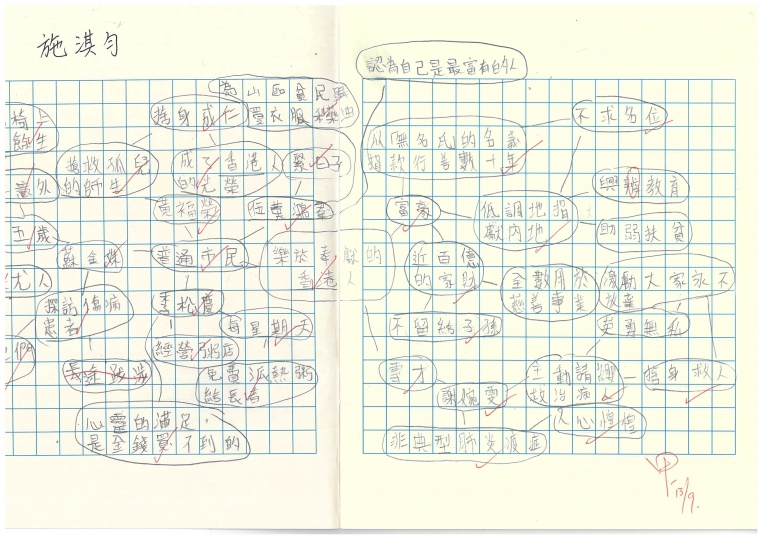 施淇勻
認為自己是最富有的人
為山區貧民
買衣服
捨身成仁
不求名位
以「無名氏的名義
捐款行善數十年
椅上
餘生
搶救孤兒
的師生
成了香港人
的光榮
意外
黃福榮
富豪
低調地捐
獻內地
興辦教育
助弱扶貧
五歲
蘇金妹
普通市民
樂於奉獻的
香港人
近百億
的家財
全數用於
慈善事業
激勵大家永不
放棄
尤人
探訪傷病
患者
李松慶
每星期天
不留給子孫
英勇無私
經營粥店
免費派熱粥
給長者
長途跋涉
專才
謝婉雯
主動請纓
救治病人
捨身救人
心靈的滿足,
是金錢買不到的
非典型肺炎疫症
人心惶惶
13/9.